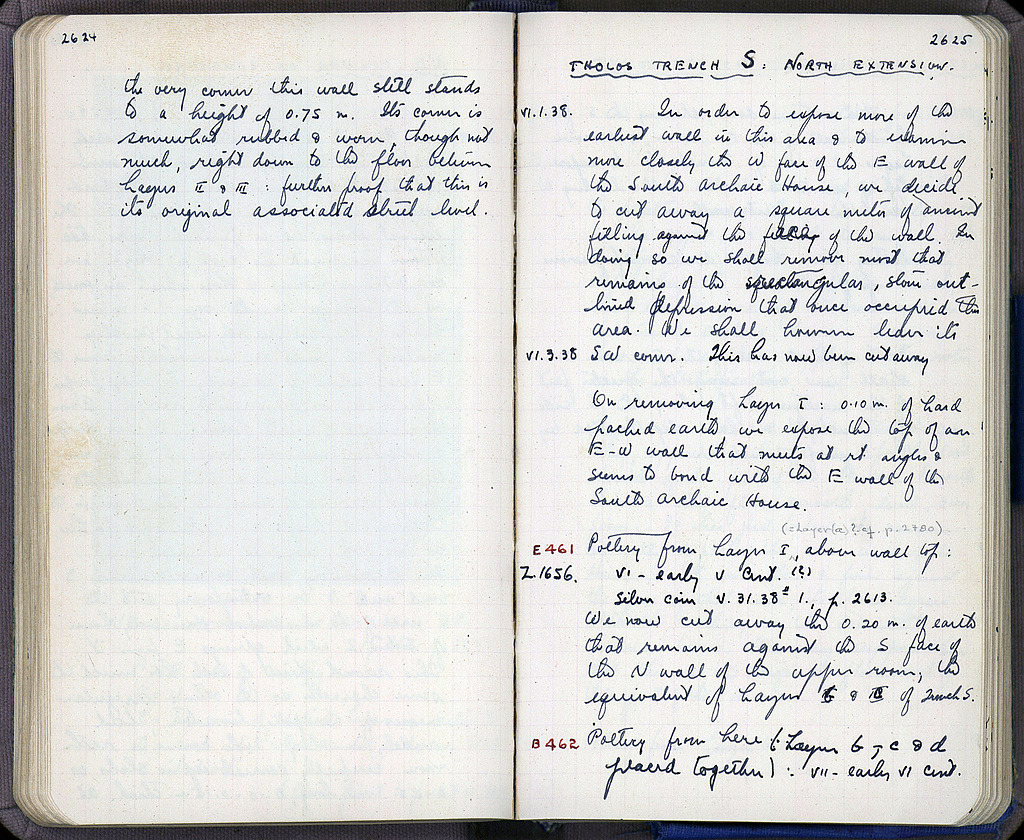 2624
the very corner this wall still stands
to a height of 0.75 m. Its corner is
somewhat rubbed & worn, though not
much, right down to the floor between
Layers II & III : further proof that this is
its original associated street level.
2625
THOLOS TRENCH S: NORTH EXTENSION.
VI.1.38. In order to expose more of the
earliest wall in this area & to examine
more closely the W face of the E wall of
the South Archaic House we decide
to cut away a square meter of ancient
filling against the face of the wall. In
doing so we shall remove most that
remains of the rectangular, stone out-
lined depression that once occupied this
area. We shall however leave its
VI.3.38 SW corner. This has now been cut away
On removing Layer I : 0.10 m. of hard
packed earth, we expose the top of an
E-W wall that meets at rt. angles &
seems to bond with the E wall of the
South Archaic House.
(=Layer (a)? cf. p. 2780)
E 461 Pottery from Layer I, above wall top:
Σ.1656. VI - early V Cent. (?)
Silver coin V.31.38 1., p. 2613.
We now cut away the 0.20 m. of earth
that remains against the S face of
the N wall of the upper room, the
equivalent of Layers & III of Trench S.
B 462 Pottery from here (: Layers b, c & d
placed together) : VII - early VI Cent.